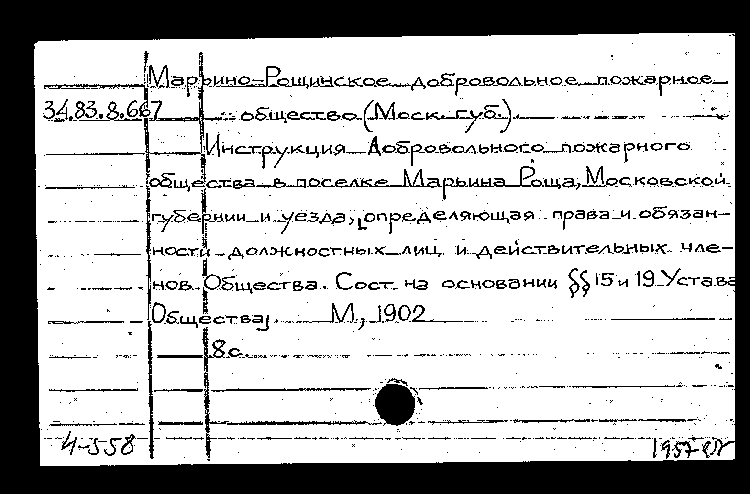 Марьино-Рощинское добровольное пожарное
34.83.8.667 общество (Моск. губ.).
Инструкция Добровольного пожарного
общества в поселке Марьина Роща, Московской
губернии и уезда, [определяющая права и обязан-
ности должностных лиц и действительных чле-
нов Общества. Сост. на основании §§ 15 и 19 Устава
Общества]. М., 1902.
8с.
4-558 1957